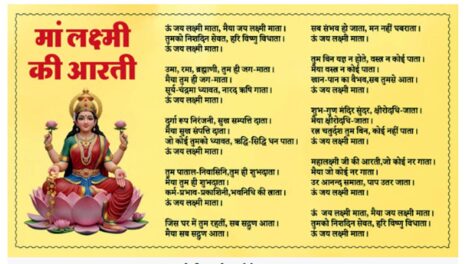 मां लक्ष्मी
की आरती
ऊं जय लक्ष्मी माता, मैया जय लक्ष्मी माता।
तुमको निशदिन सेवत, हरि विष्णु विधाता।
ऊं जय लक्ष्मी माता।
उमा, रमा, ब्रह्माणी, तुम ही जग-माता।
मैया तुम ही जग-माता।
सूर्य-चंद्रमा ध्यावत, नारद ऋषि गाता।
ऊं जय लक्ष्मी माता।
दुर्गा रूप निरंजनी, सुख सम्पत्ति दाता।
मैया सुख संपत्ति दाता।
जो कोई तुमको ध्यावत, ऋद्धि-सिद्धि धन पाता।
ऊं जय लक्ष्मी माता।
तुम पाताल-निवासिनि,तुम ही शुभदाता।
मैया तुम ही शुभदाता।
कर्म-प्रभाव-प्रकाशिनी,भवनिधि की त्राता।
ऊं जय लक्ष्मी माता।
जिस घर में तुम रहतीं, सब सद्गुण आता।
मैया सब सद्गुण आता।
सब संभव हो जाता, मन नहीं घबराता।
ऊं जय लक्ष्मी माता।
तुम बिन यज्ञ न होते, वस्त्र न कोई पाता।
मैया वस्त्र न कोई पाता।
खान-पान का वैभव,सब तुमसे आता।
ऊं जय लक्ष्मी माता।
शुभ-गुण मंदिर सुंदर, क्षीरोदधि-जाता।
मैया क्षीरोदधि-जाता।
रत्न चतुर्दश तुम बिन, कोई नहीं पाता।
ऊं जय लक्ष्मी माता।
महालक्ष्मी जी की आरती,जो कोई नर गाता।
मैया जो कोई नर गाता।
उर आनन्द समाता, पाप उतर जाता।
ऊं जय लक्ष्मी माता।
ऊं जय लक्ष्मी माता, मैया जय लक्ष्मी माता।
तुमको निशदिन सेवत, हरि विष्णु विधाता।
ऊं जय लक्ष्मी माता।